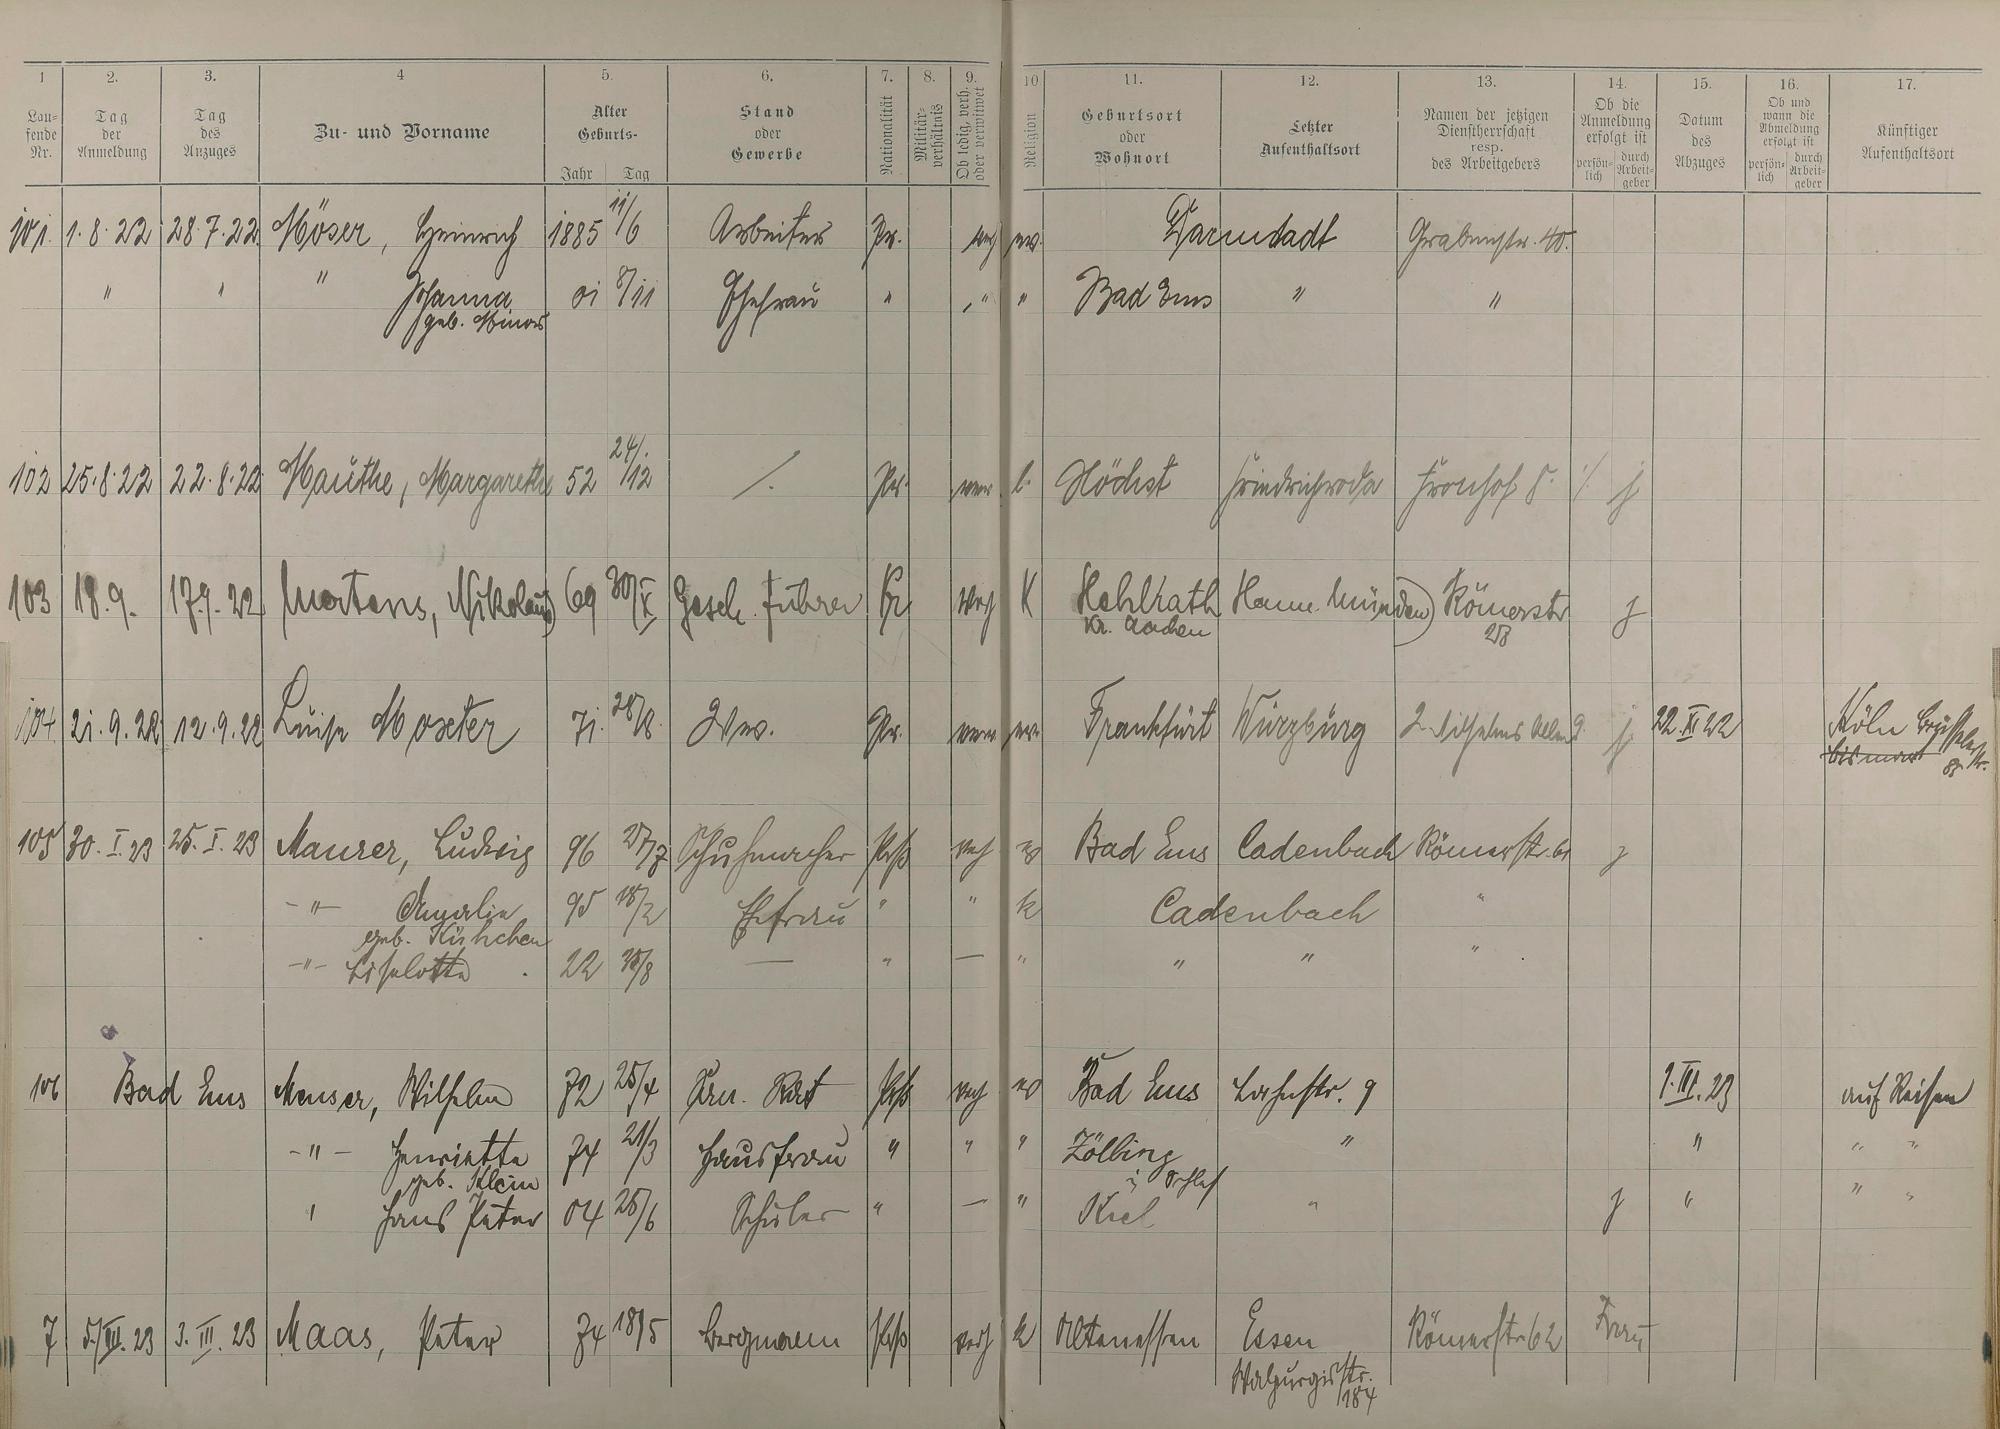 1 2. 3. 4 5. 6. 7. 8. 9. 10 11. 12. 13. 14. 15. 16. 17.
Lau-
fende
Nr.
Tag
der
Anmeldung
Tag
des
Anzuges
Zu- und Vorname
Alter
Geburts-
Jahr Tag
Stand
oder
Gewerbe
Nationalität
Militär-
verhältnis
Ob ledig, verh.
oder verwitwet
Religion
Geburtsort
oder
Wohnort
Letzter
Aufenthaltsort
Namen der jetzigen
Dienstherrschaft
resp.
des Arbeitgebers
Ob die
Anmeldung
erfolgt ist
persön-
lich
durch
Arbeit-
geber
Datum
des
Abzuges
Ob und
wann die
Abmeldung
erfolgt ist
persön-
lich
durch
Arbeit-
geber
Künftiger
Aufenthaltsort
101. 1.8.22 28.7.22 Möser, Heinrich 1885 11/6 Arbeiter Pr. verh ev. Darmstadt Grabenstr. 40.
" " " Johanna 01 8/11 Ehefrau " " " Bad Ems " "
geb. Minor
102 25.8.22 22.8.22 Mauthe, Margarethe 52 24/12 /. Pr. verw. l. Höchst Friedrichroda Fronhof 8. j
103 18.9. 17.9.22 Martens, Nikolaus 69 30/X Gesch. Führer Pr verh K Hehlrath Hann. Münden Römerstr
Kr. Aachen 28
104 21.9.22 12.9.22 Luise Moxter 71. 28/8. Wwe. Pr. verw ev. Frankfurt Würzburg Wilhelms Allee j 22.XI 22 Köln Brüsselerstr.
85
105 30.I.23 25.I.23 Maurer, Ludwig 96 27/7 Schuhmacher Prß verh ev Bad Ems Cadenbach Römerstr. 61 j
-"- Amalie 95 18/2 Ehefrau " " k Cadenbach "
geb.
-"- Liselotte 22 — " — " " " "
106 Bad Ems Menser, Wilhelm 72 25/4 Rat Prß verh ev Bad Ems Lahnstr. 9 1.III.23 auf Reisen
-"- Henriette 74 21/3 Hausfrau " " " Zölling " " " "
geb. Klein i/ Schles
" Hans Peter 04 25/6 Schüler " — " Kiel " j " " "
7 5./III.23 3.III.23 Maas, Peter 74 18/5 Bergmann Prß verh k Altenessen Essen Römerstr 62 Frau
Walpurgisstr.
184